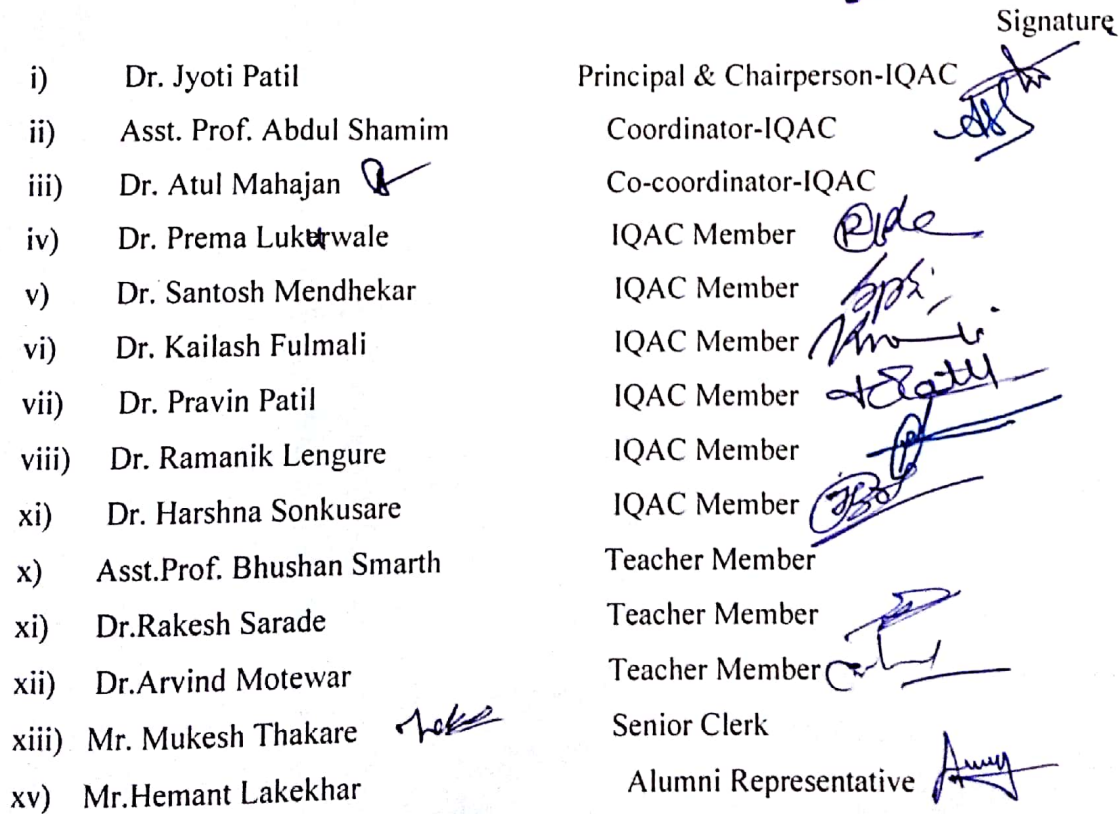 Signature
i) Dr. Jyoti Patil Principal & Chairperson-IQAC
ii) Asst. Prof. Abdul Shamim Coordinator-IQAC
iii) Dr. Atul Mahajan Co-coordinator-IQAC
iv) Dr. Prema Lukurwale IQAC Member
v) Dr. Santosh Mendhekar IQAC Member
vi) Dr. Kailash Fulmali IQAC Member
vii) Dr. Pravin Patil IQAC Member
viii) Dr. Ramanik Lengure IQAC Member
xi) Dr. Harshna Sonkusare IQAC Member
x) Asst.Prof. Bhushan Smarth Teacher Member
xi) Dr.Rakesh Sarade Teacher Member
xii) Dr.Arvind Motewar Teacher Member
xiii) Mr. Mukesh Thakare Senior Clerk
xv) Mr.Hemant Lakekhar Alumni Representative